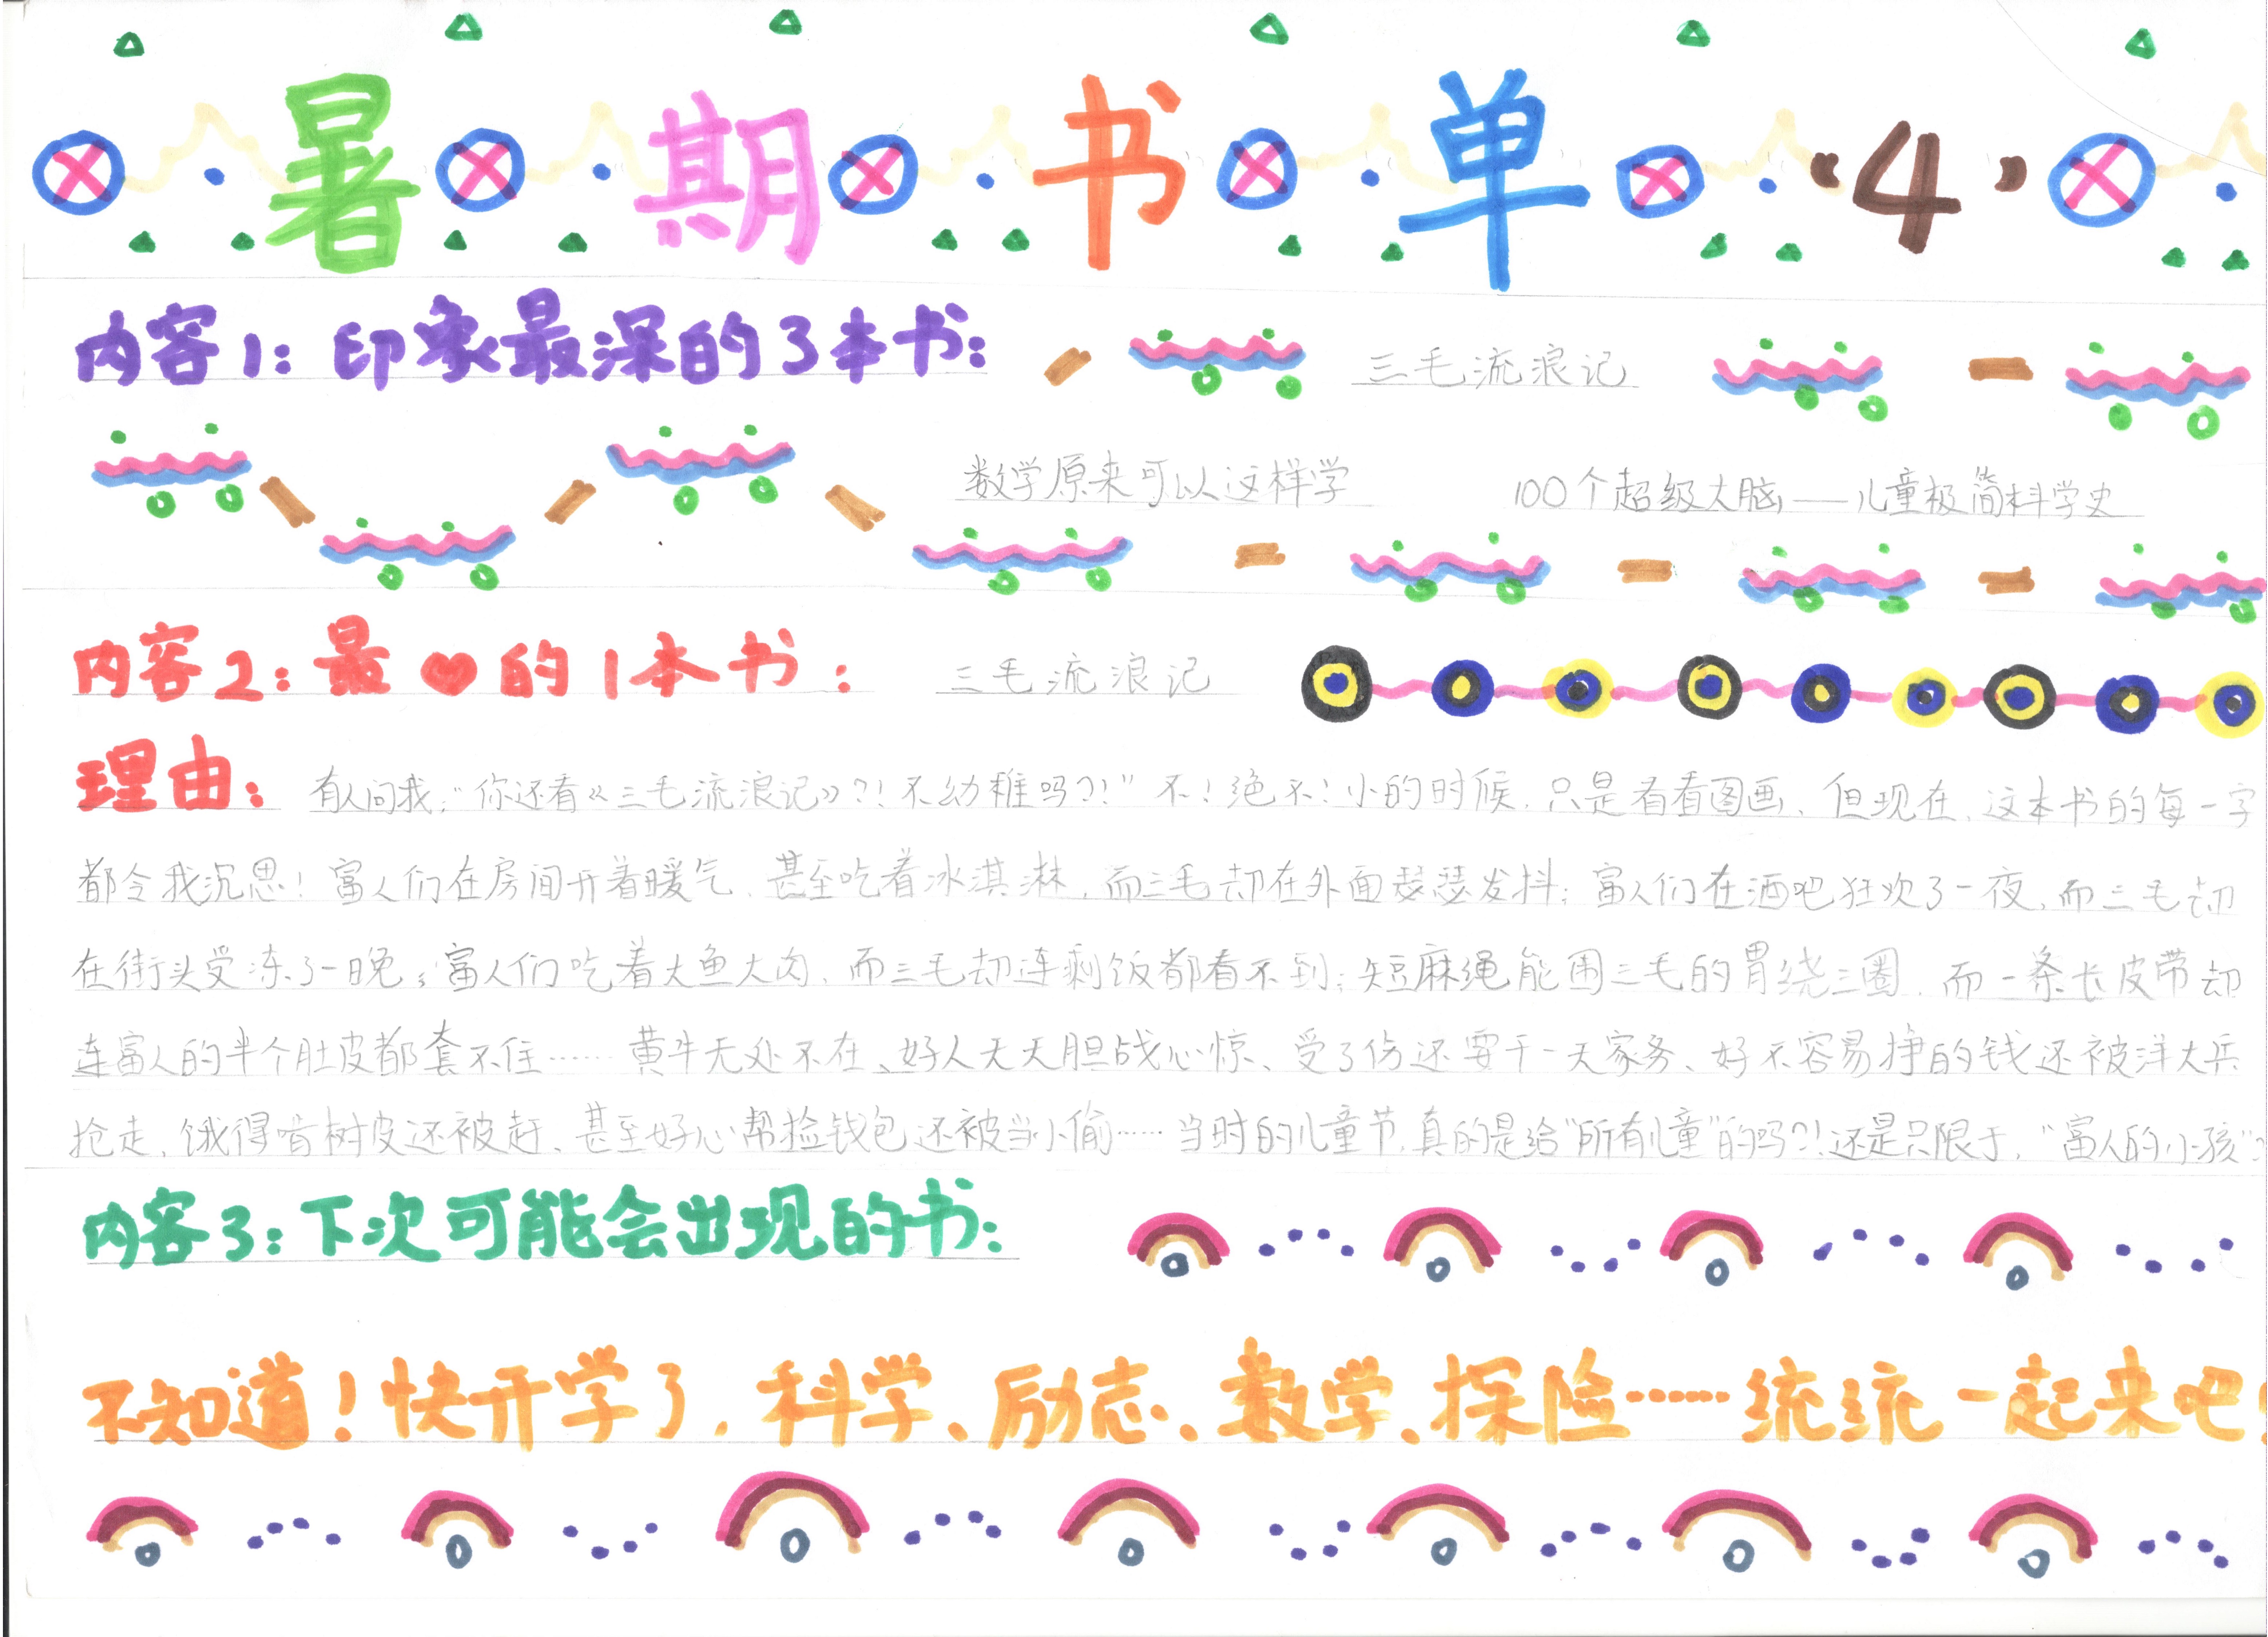 暑期书单（4）
内容1：印象最深的3本书：
三毛流浪记
数学原来可以这样学 100个超级大脑——儿童极简科学史
内容2：最❤的1本书： 三毛流浪记
理由：有人问我：“你还看《三毛流浪记》？！不幼稚吗？！”不！绝不！小的时候，只是看看图画，但现在，这本书的每一字
都令我沉思！富人们在房间开着暖气，甚至吃着冰淇淋，而三毛却在外面瑟瑟发抖；富人们在酒吧狂欢了一夜，而三毛却
在街头受冻了一晚；富人们吃着大鱼大肉，而三毛却连剩饭都看不到；短麻绳能围三毛的胃绕三圈，而一条长皮带却
连富人的半个肚皮都套不住……黄牛无处不在、好人天天胆战心惊、受了伤还要干一天家务、好不容易挣的钱还被洋大兵
抢走，饿得啃树皮还被赶、甚至好心帮捡钱包还被当小偷……当时的儿童节，真的是给“所有儿童”的吗？！还是只限于，“富人的小孩”？
内容3：下次可能会出现的书：
不知道！快开学了，科学、励志、数学、探险……统统一起来吧！